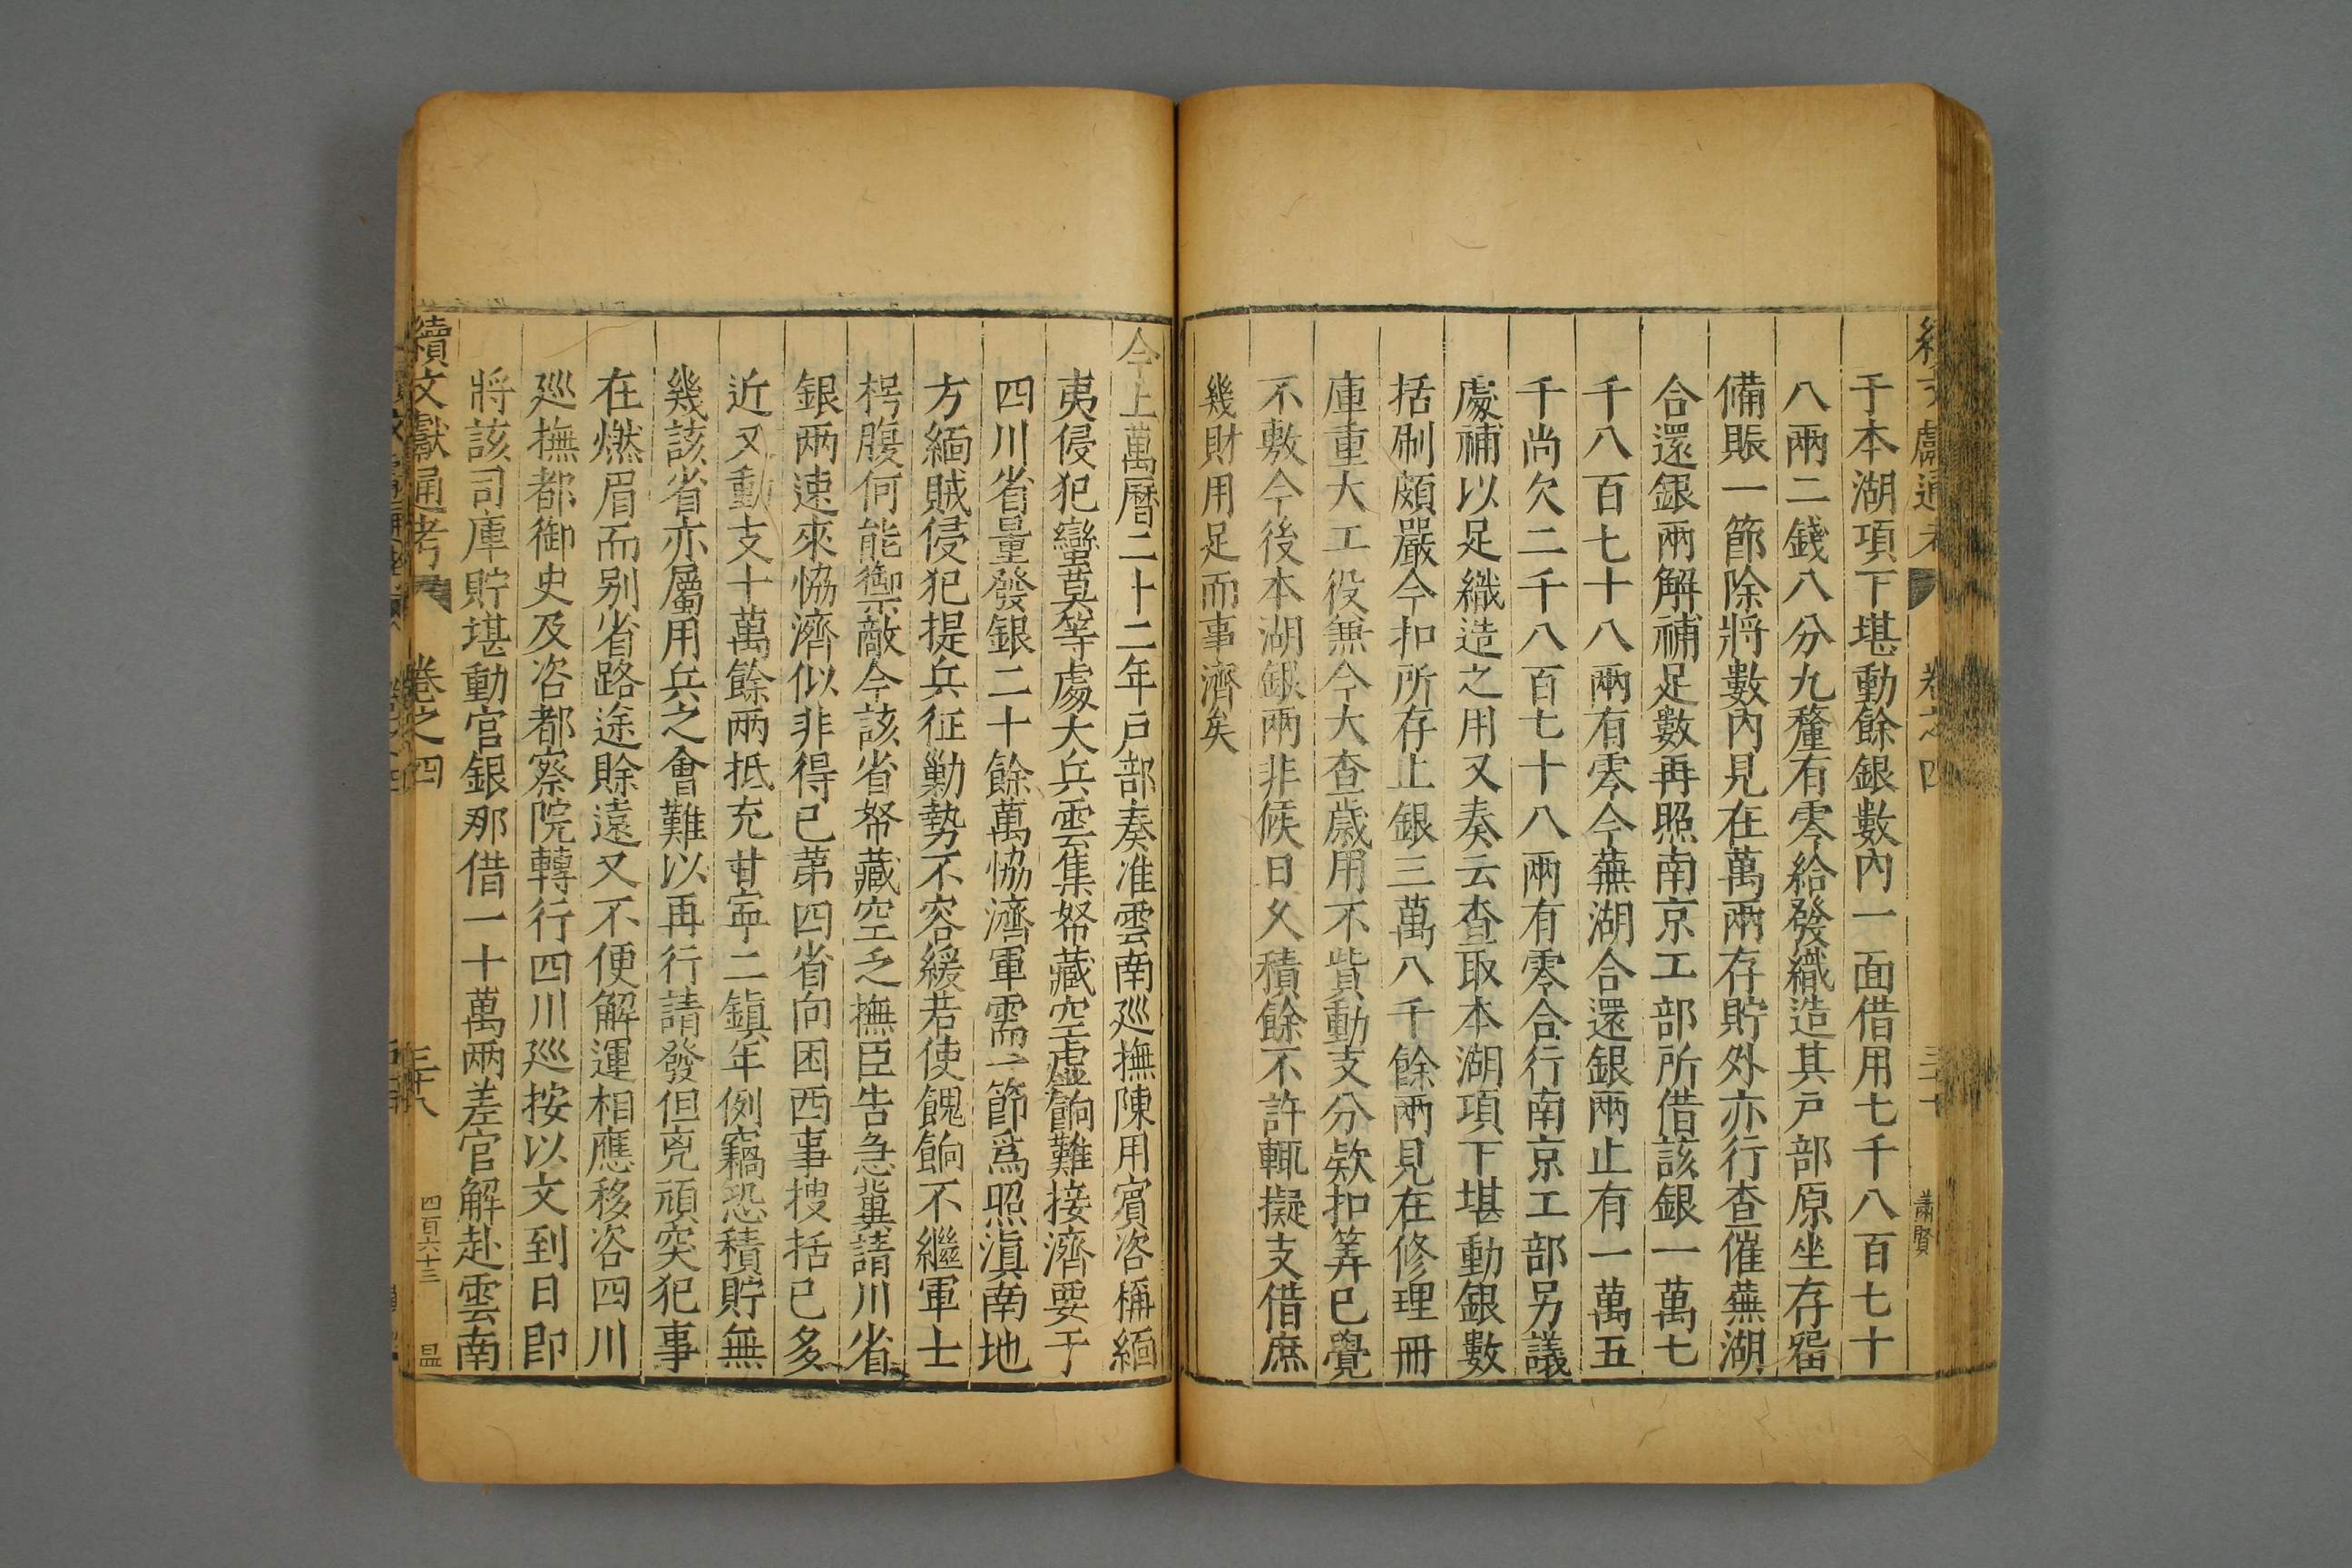 于本湖項下堪動餘銀數內一面借用七千八百七十
八兩二錢八分九釐有零給發織造其戸部原坐存畱
備賑一節除將數內見在萬兩存貯外亦行查催蕪湖
合還銀兩解補足數再照南京工部所借該銀一萬七
千八百七十八兩有零今蕪湖合還銀兩止有一萬五
千尚欠二千八百七十八兩有零合行南京工部另議
處補以足織造之用又奏云查取本湖項下堪動銀數
括刷頗嚴今扣所存止銀三萬八千餘兩見在修理冊
庫重大工役無今大查歲用不貲動支分欵扣筭已覺
不敷今後本湖銀兩非候日久積餘不許輒擬支借庶
幾財用足而事濟矣
今上萬曆二十二年戸部奏准雲南廵撫陳用賓咨稱緬
夷侵犯蠻莫等處大兵雲集帑藏空虛餉難接濟要于
四川省量發銀二十餘萬恊濟軍需一節爲照滇南地
方緬賊侵犯提兵征勦勢不容緩若使餽餉不繼軍士
枵腹何能禦敵今該省帑藏空乏撫臣告急冀請川省
銀兩速來恊濟似非得已苐四省向困西事搜括已多
近又動支十萬餘兩抵充甘寧二鎮年例竊恐積貯無
幾該省亦屬用兵之會難以再行請發但兇頑突犯事
在燃眉而别省路途賒遠又不便解運相應移咨四川
廵撫都御史及咨都察院轉行四川廵按以文到日卽
將該司庫貯堪動官銀那借一十萬兩差官解赴雲南
續文獻通考 卷之四 三十八 四百六十三